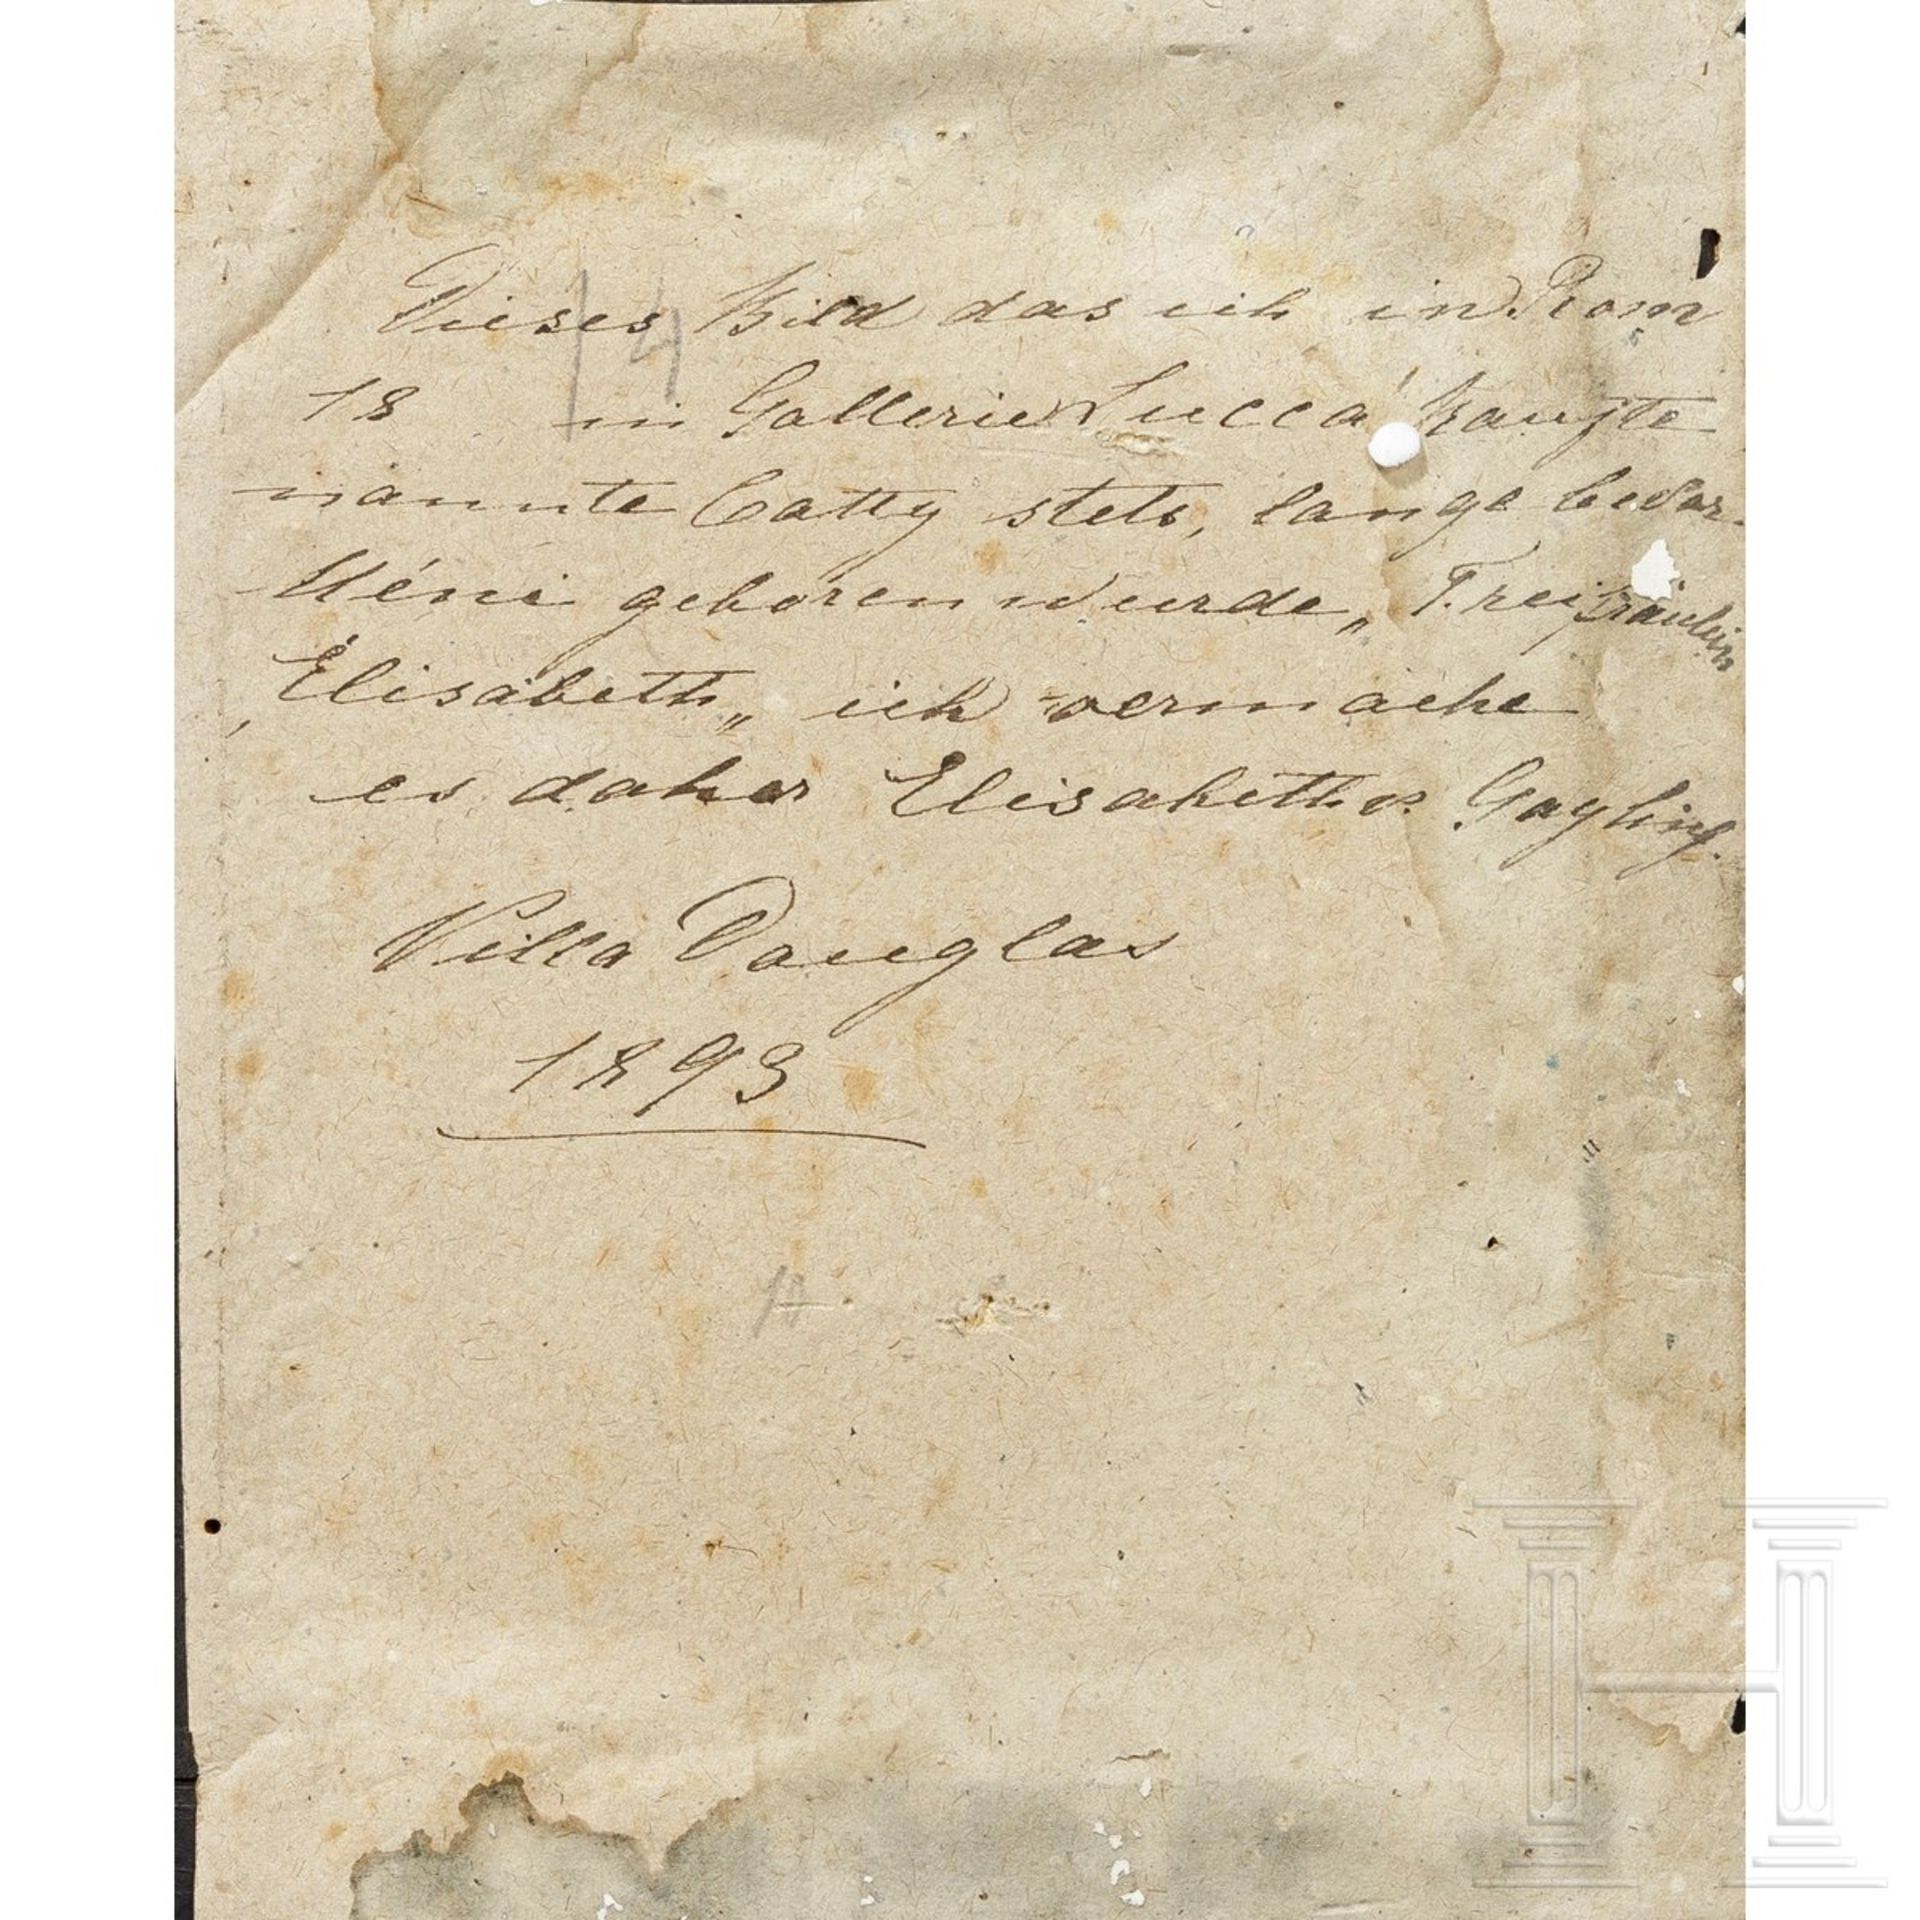 Dieses Bild das ich in Rom
18 in Gallerie Lucca kaufte
nannte Catty stets, lange bevor
geboren wurde „Freifräulein
Elisabeth„ ich vermache
es daher Elisabeth v. Gayling.
Villa Douglas
1893
14